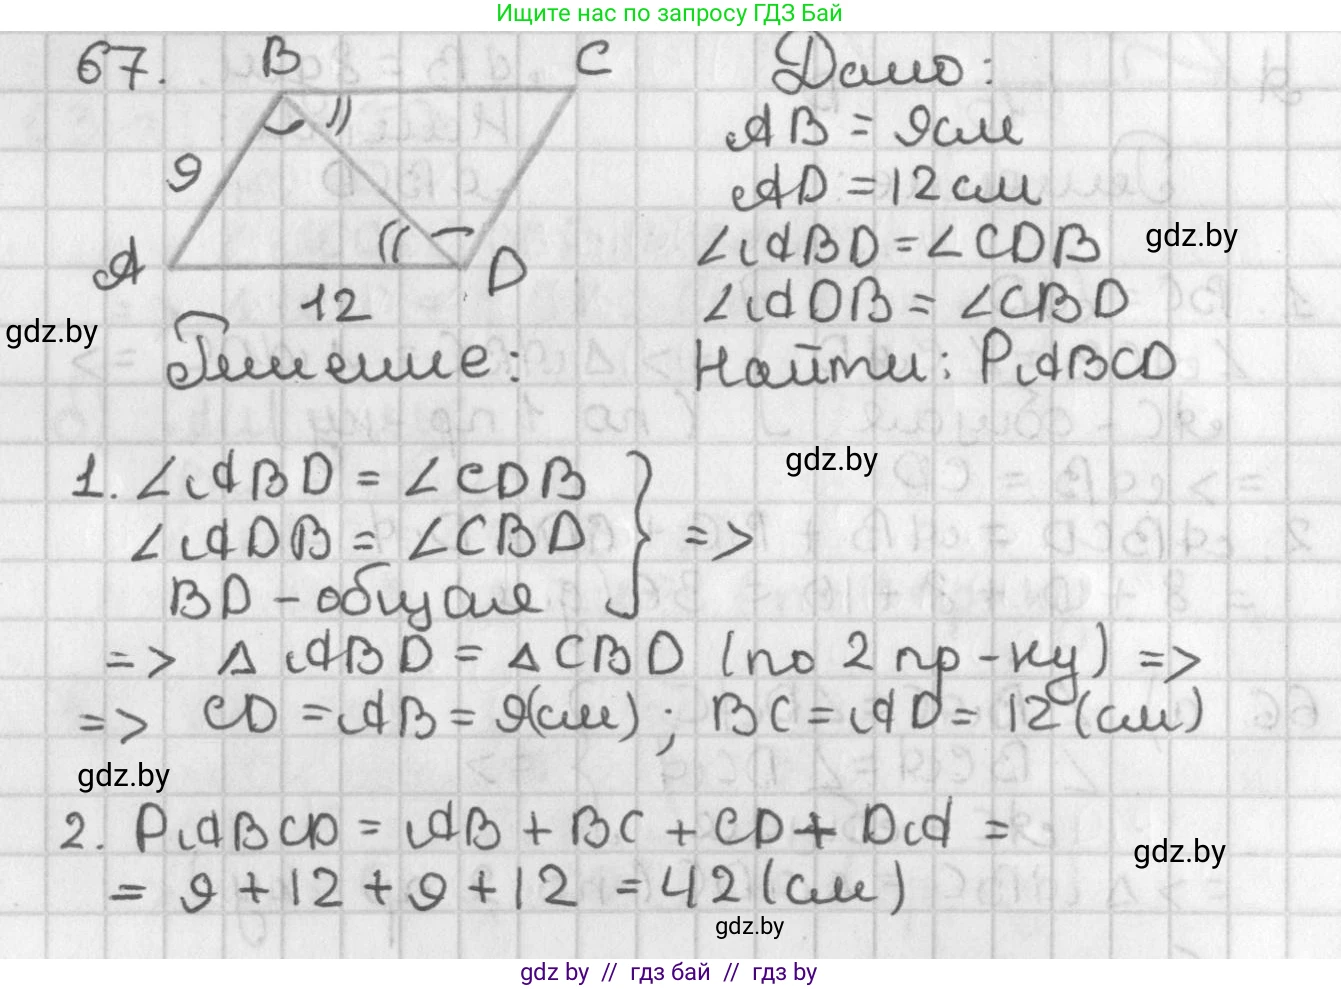 Ищите нас по запросу ГДЗ Бай
67.
B
C
9
A
D
12
Дано:
AB = 9см
AD = 12см
∠ABD = ∠CDB
gdz.by
∠ADB = ∠CBD
gdz.by
Решение:
Найти: PABCD
1. ∠ABD = ∠CDB
gdz.by
∠ADB = ∠CBD
=>
BD - общая
=> △ABD = △CBD (по 2 пр-ку) =>
=> CD = AB = 9(см); BC = AD = 12(см)
gdz.by
2. PABCD = AB + BC + CD + DA =
gdz.by
= 9 + 12 + 9 + 12 = 42(см)
gdz.by
gdz by // гдз бай // гдз by